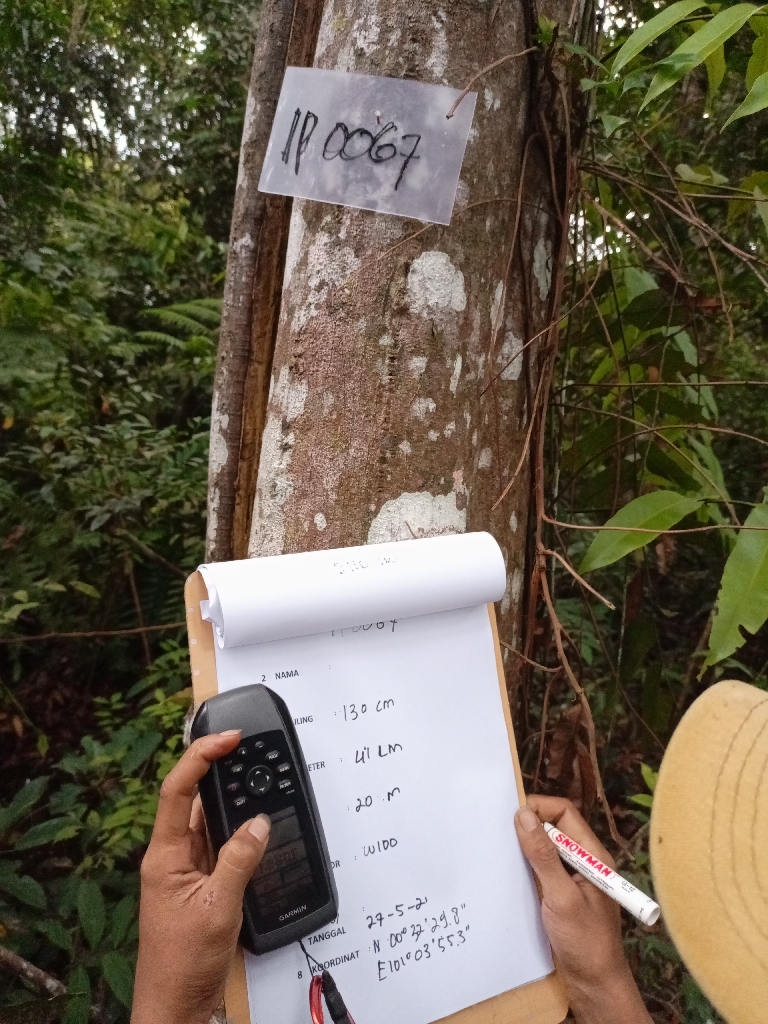 0067
2 NAMA :
ILING : 130 cm
ETER : 41 cm
: 20 m
OR : W100
TANGGAL 27-5-2
8 KOORDINAT : N 00° 22' 29.8"
E101° 03' 55.3"
GARMIN
SNOWMAN